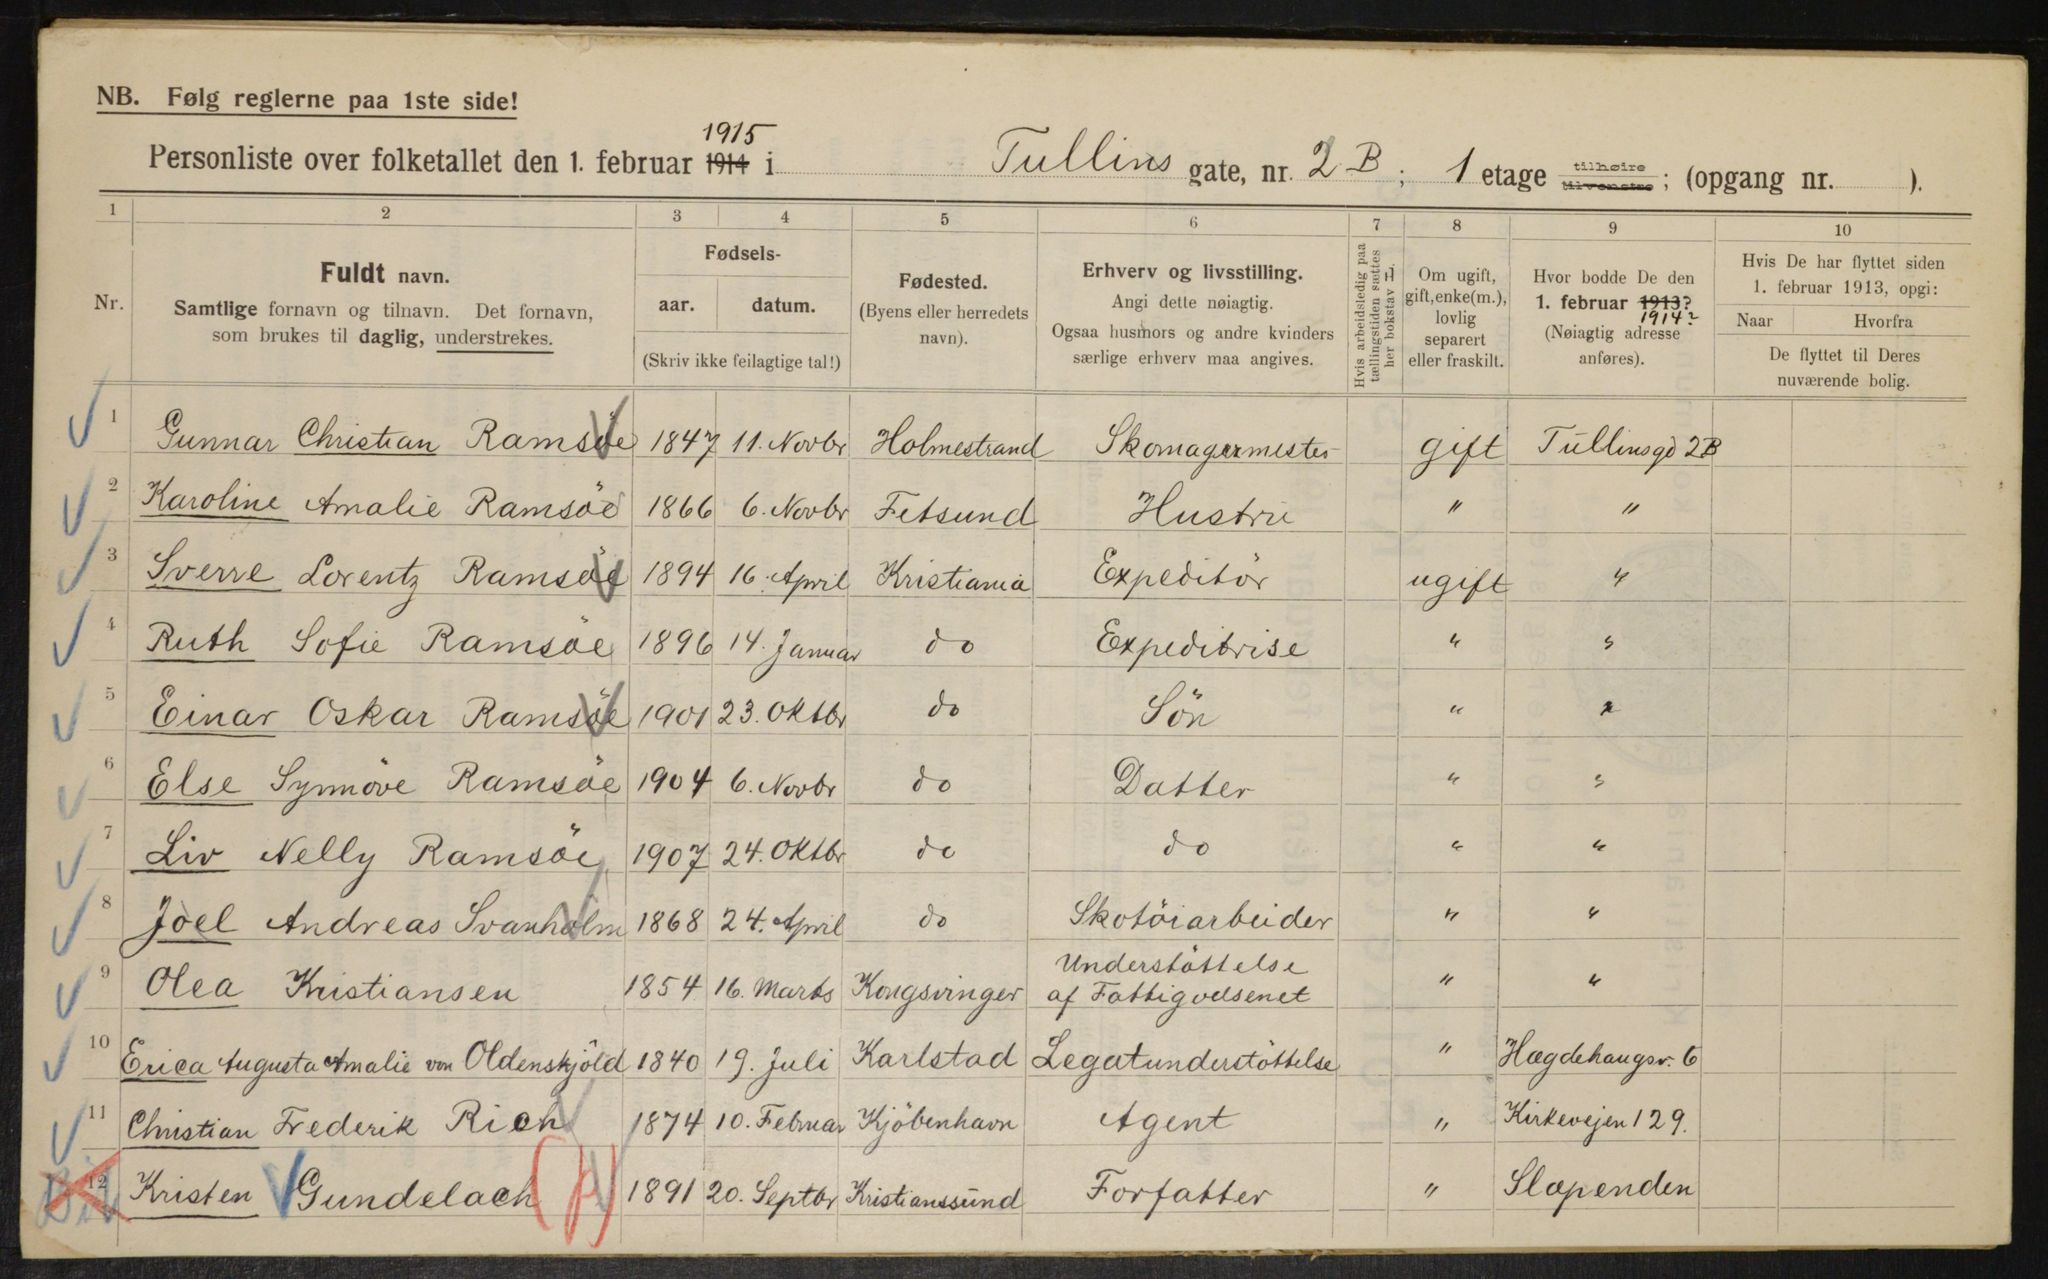 NB. Følg reglerne paa 1ste side!
1915
Personliste over folketallet den 1. februar 1914 i Tullins gate, nr. 2 B; 1 etage tilhøire tilvenstre; (opgang nr. ).
1 2 3 4 5 6 7 8 9 10
Nr.
Fuldt navn.
Samtlige fornavn og tilnavn. Det fornavn,
som brukes til daglig, understrekes.
Fødsels-
aar. datum.
(Skriv ikke feilagtige tal!)
Fødested.
(Byens eller herredets
navn).
Erhverv og livsstilling.
Angi dette nøiagtig.
Ogsaa husmors og andre kvinders
særlige erhverv maa angives.
Hvis arbeidsledig paa
tællingstiden sættes
her bokstav L.
Om ugift,
gift, enke(m.),
lovlig
separert
eller fraskilt.
Hvor bodde De den
1. februar 1913?
1914?
(Nøiagtig adresse
anføres).
Hvis De har flyttet siden
1. februar 1913, opgi:
Naar Hvorfra
De flyttet til Deres
nuværende bolig.
1 Gunnar Christian Ramsöe 1847 11. Novbr Holmestrand Skomagermester gift Tullinsgd 2B
2 Karoline Amalie Ramsöe 1866 6. Novbr Fetsund Hustru " "
3 Sverre Lorentz Ramsöe 1894 16. April Kristiania Expeditör ugift "
4 Ruth Sofie Ramsöe 1896 14. Januar do Expeditrise " "
5 Einar Oskar Ramsöe 1901 23. Oktbr do Sön " "
6 Else Synnöve Ramsöe 1904 6. Novbr do Datter " "
7 Liv Nelly Ramsöe 1907 24. Oktbr do do " "
8 Joel Andreas Svanholm 1868 24. April do Skotöiarbeider " "
9 Olea Kristiansen 1854 16. Marts Kongsvinger Understöttelse af Fattigvdsenet " "
10 Erica Augusta Amalie von Oldenskjöld 1840 19. Juli Karlstad Legatunderstöttelse " Hægdehaugsv. 6
11 Christian Frederik Rich 1874 10. Februar Kjöbenhavn Agent " Kirkevejen 129.
12 Kristen Gundelach 1891 20. Septbr Kristianssund Forfatter " Slæpenden